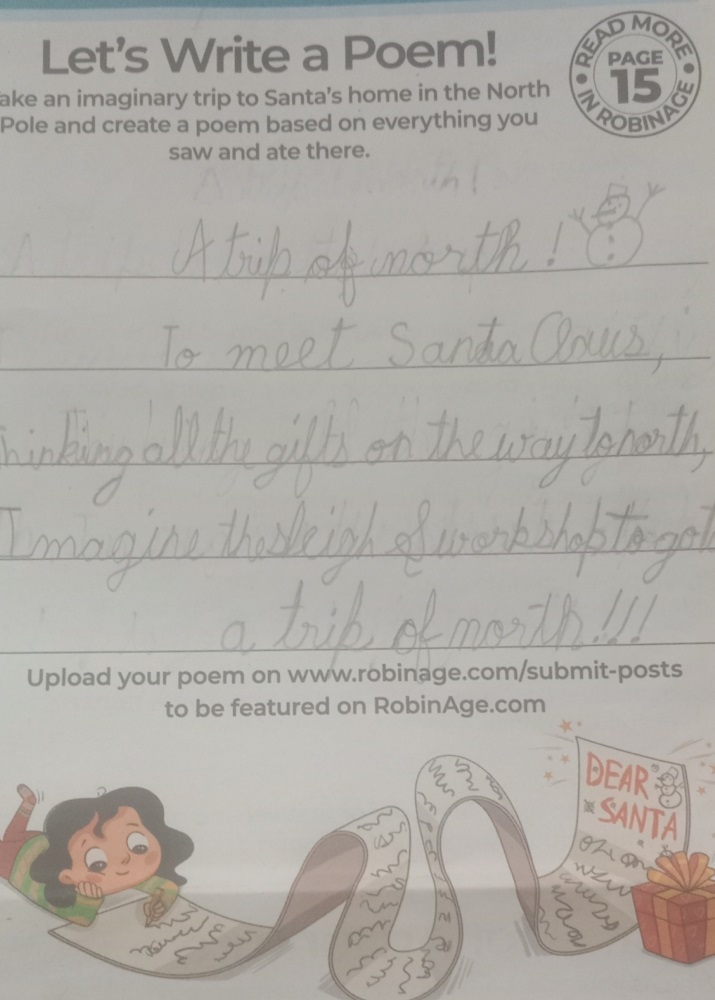 Let's Write a Poem!
READ MORE
PAGE
15
IN ROBINAGE
ake an imaginary trip to Santa's home in the North
Pole and create a poem based on everything you
saw and ate there.
A trip of north!
To meet Santa Claus,
hinking all the gifts on the way to north,
Imagine the sleigh of workshop to go
a trip of north!!!
Upload your poem on www.robinage.com/submit-posts
to be featured on RobinAge.com
DEAR
SANTA